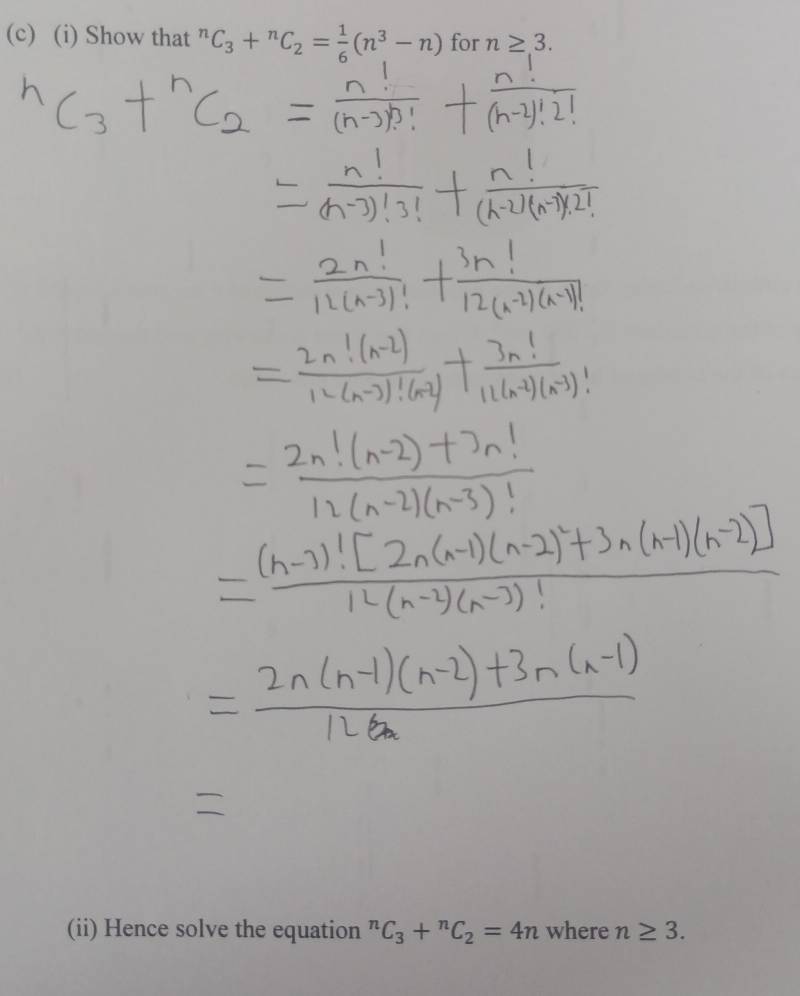 (c) (i) Show that ⁿC₃ + ⁿC₂ = 1/6 (n³ − n) for n ≥ 3.
ⁿC₃ + ⁿC₂ = n!/((n-3)!3!) + n!/((n-2)!2!)
= n!/((n-3)!3!) + n!/((n-2)(n-3)!2!)
= 2n!/(12(n-3)!) + 3n!/(12(n-2)(n-3)!)
= 2n!(n-2)/(12(n-3)!(n-2)) + 3n!/(12(n-2)(n-3)!)
= (2n!(n-2)+3n!)/(12(n-2)(n-3)!)
= (n-3)![2n(n-1)(n-2)²+3n(n-1)(n-2)]/(12(n-2)(n-3)!)
= (2n(n-1)(n-2)+3n(n-1))/12
=
(ii) Hence solve the equation ⁿC₃ + ⁿC₂ = 4n where n ≥ 3.